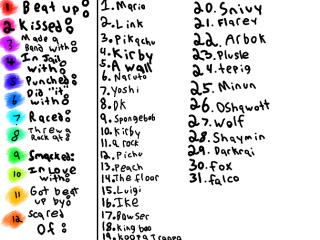 1 Beat up:
2 Kissed:
3 Made a
Band with:
4 In Jail
with:
5 Punched:
6 Did "it"
with:
7 Raced:
8 Threw a
Rock at:
9 Smacked:
10 In Love
with:
11 Got beat
up by:
12 Scared
Of:
1. Mario
2. Link
3. Pikachu
4. Kirby
5. A wall
6. Naruto
7. Yoshi
8. DK
9. Spongebob
10. Kirby
11. a rock
12. Pichu
13. Peach
14. The floor
15. Luigi
16. Ike
17. Bowser
18. King boo
19. Koopa Troopa
20. Snivy
21. Flarey
22. Arbok
23. Plusle
24. tepig
25. Minun
26. Oshawott
27. Wolf
28. Shaymin
29. Darkrai
30. fox
31. falco